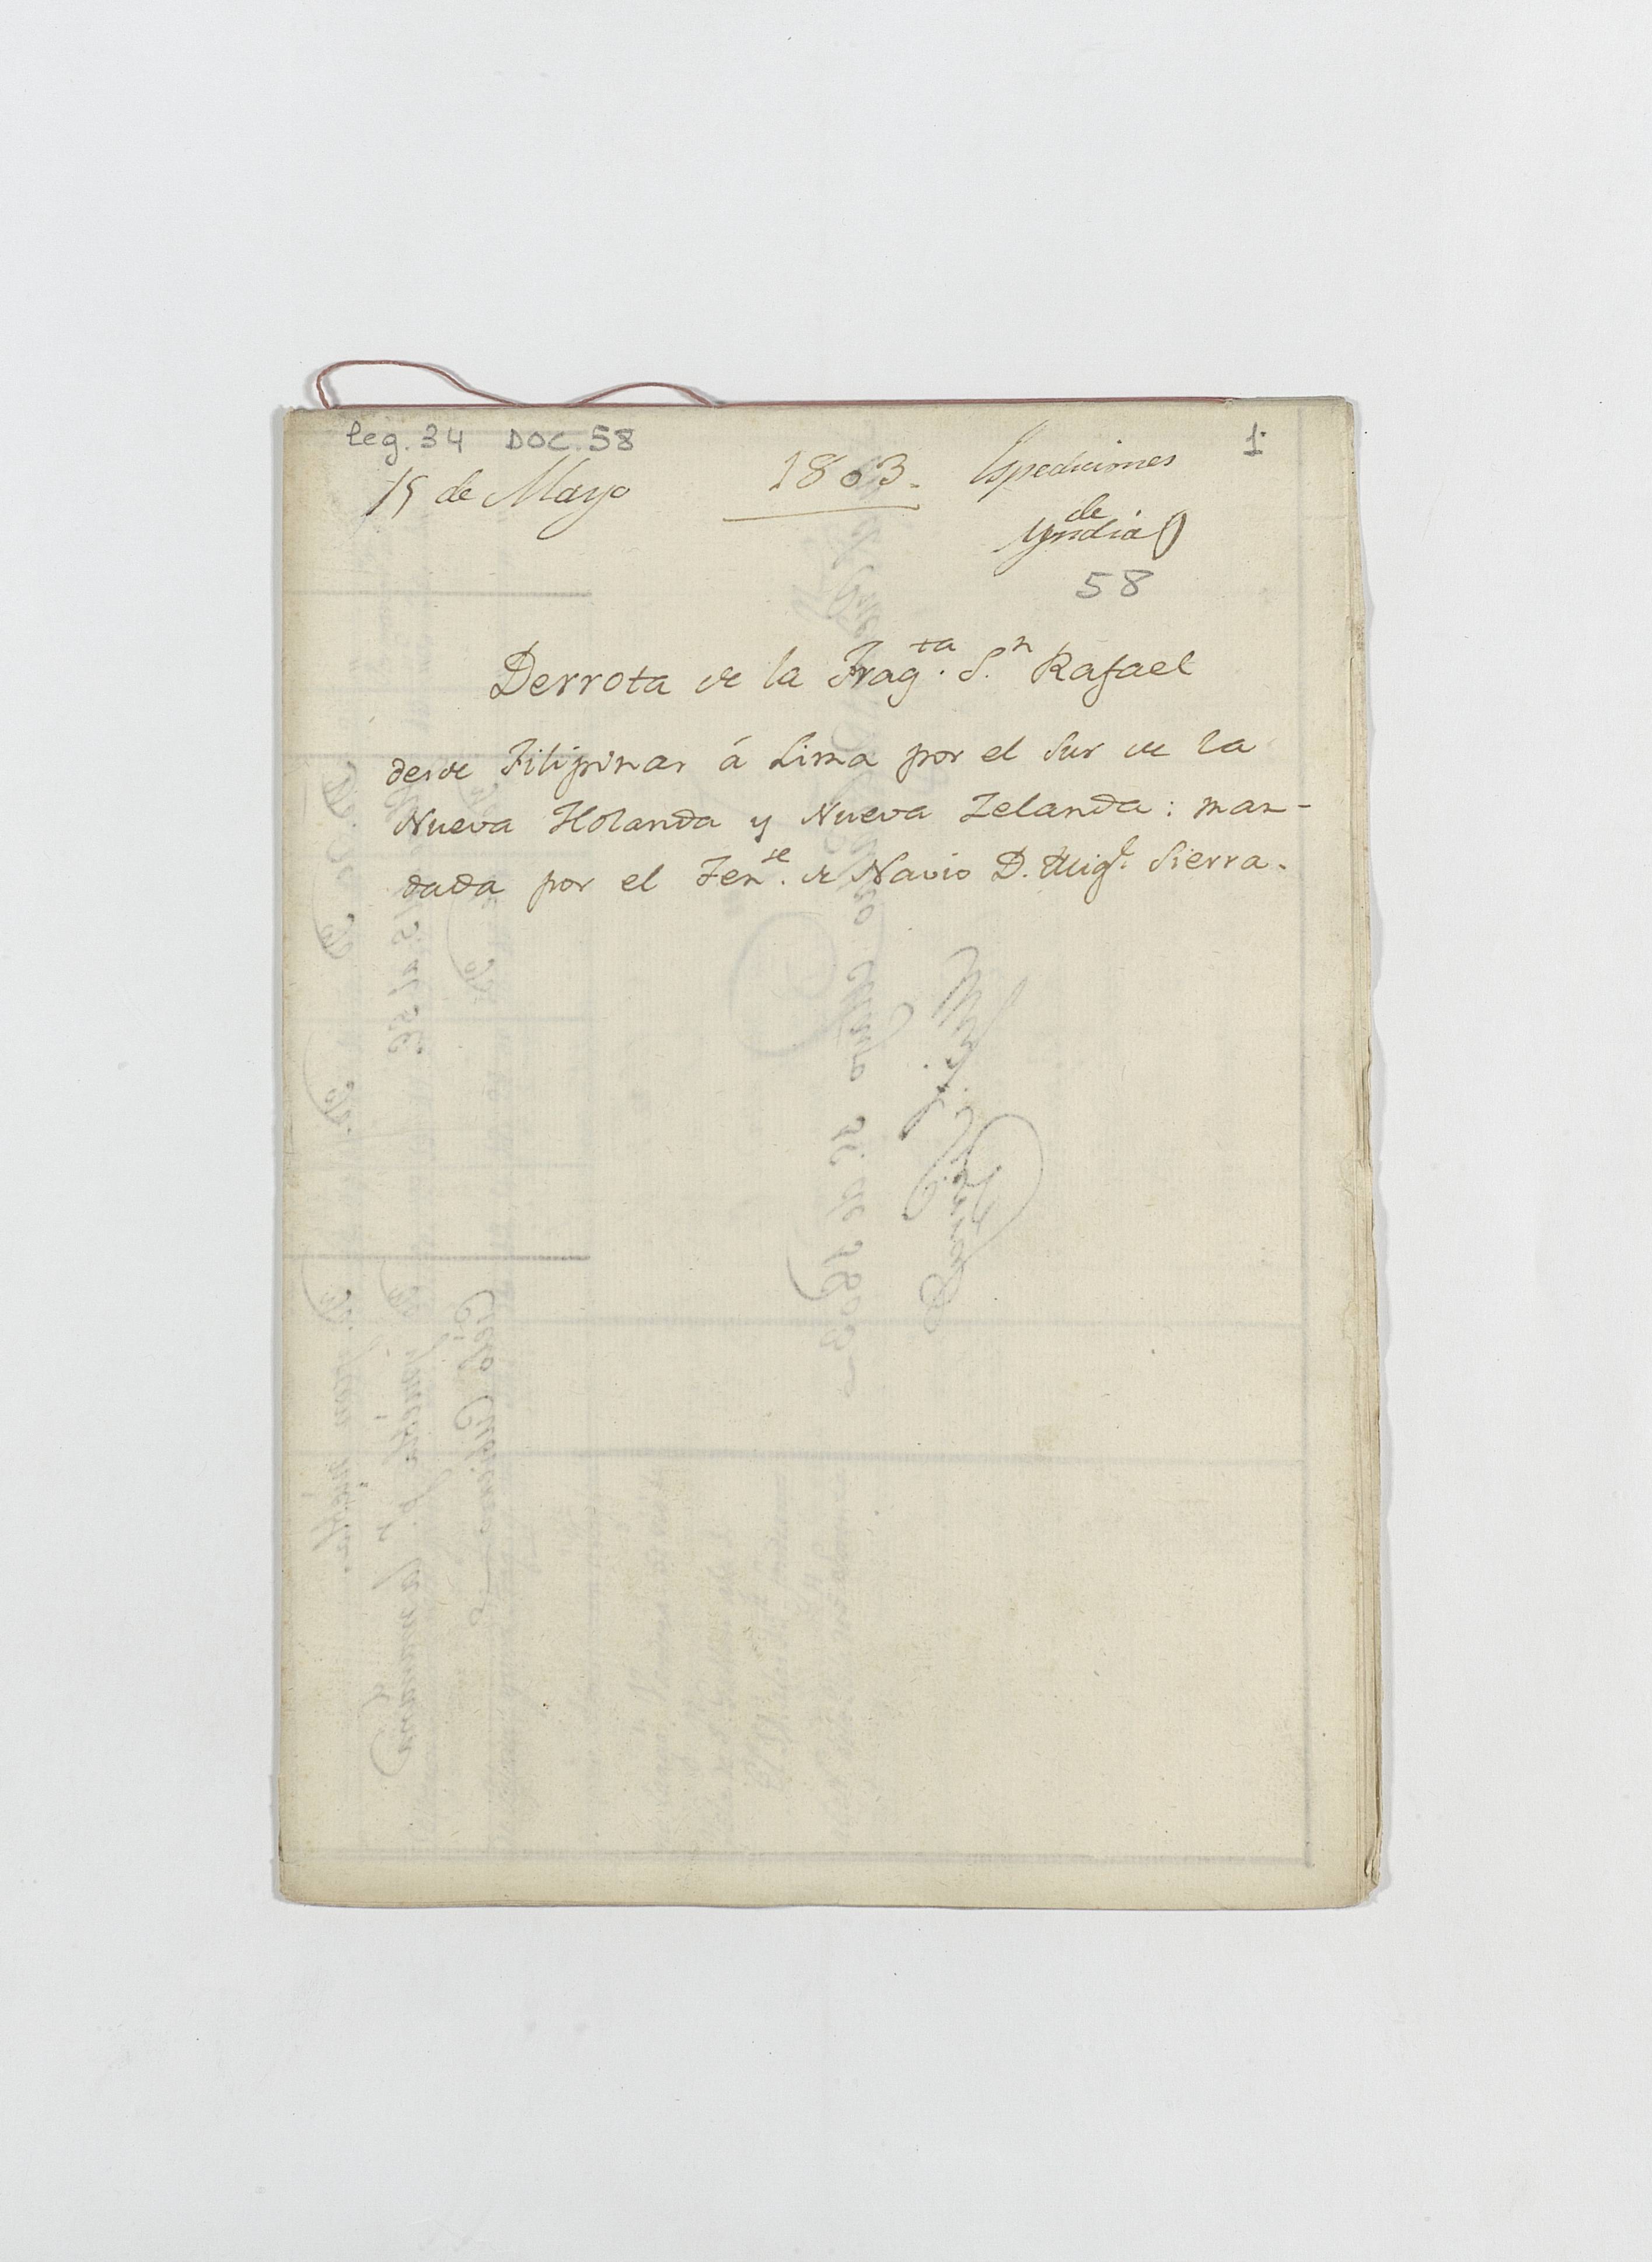 leg. 34 DOC. 58
1
15 de Mayo
1803.
Espediciones
de
Yndias
58
Derrota de la Frag.ta S.n Rafael
desde Filipinas á Lima por el Sur de la
Nueva Holanda y Nueva Zelanda: man-
dada por el Ten.te de Navio D. Mig.l Sierra.